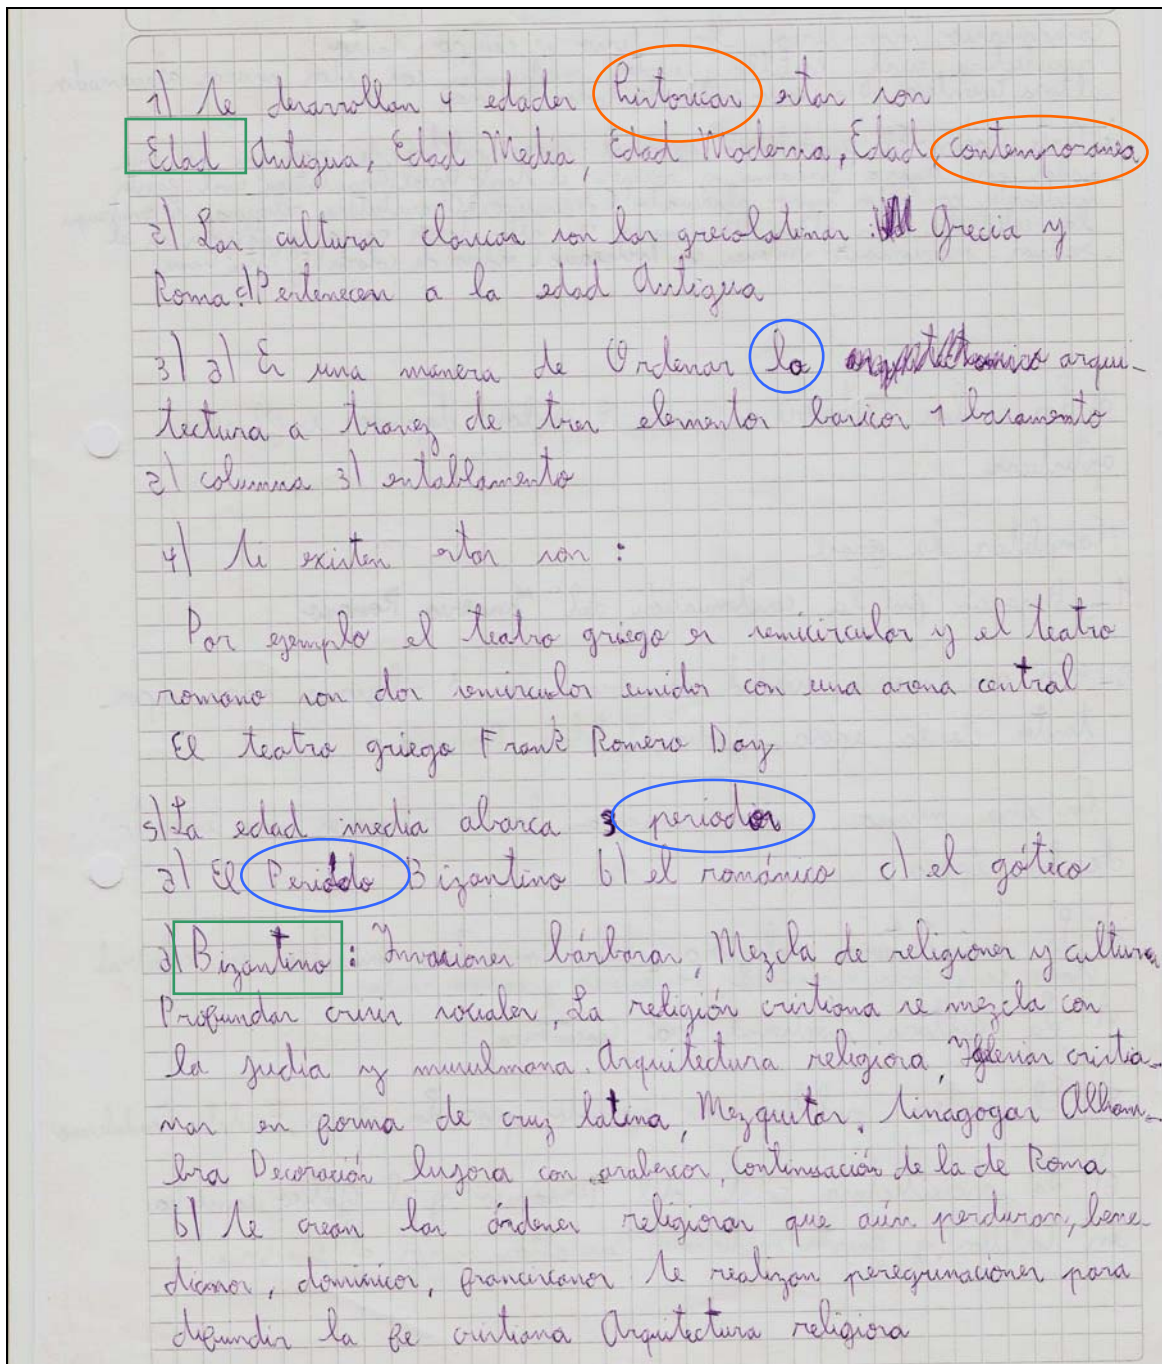 1) Se desarrollan 4 edades historicas estas son
Edad Antigua, Edad Media, Edad Moderna, Edad, contemporanea
2) Las culturas clasicas son las grecolatinas: Grecia y
Roma. Pertenecen a la edad Antigua
3) a) Es una manera de Ordenar la arqui-
tectura a travez de tres elementos basicos 1 basamento
2) columna 3) entablamento
4) Si existen estas son :
Por ejemplo el teatro griego es semicircular y el teatro
romano son dos unidos con una arena central
El teatro griego Frank Romero Day
5) La edad media abarca 3 periodos
a) El Periodo Bizantino b) el románico c) el gótico
a) Bizantino: Invasiones bárbaras, Mezcla de religiones y cultura
Profundas crisis sociales, La religión cristiana se mezcla con
la judía y musulmana. Arquitectura religiosa, Iglesias cristia-
nas en forma de cruz latina, Mezquitas, Sinagogas Alham-
bra Decoración lujosa con arabescos, Continuación de la de Roma
b) Se crean las órdenes religiosas que aún perduran, bene-
dicinos, dominicos, franciscanos Se realizan peregrinaciones para
difundir la fe cristiana Arquitectura religiosa